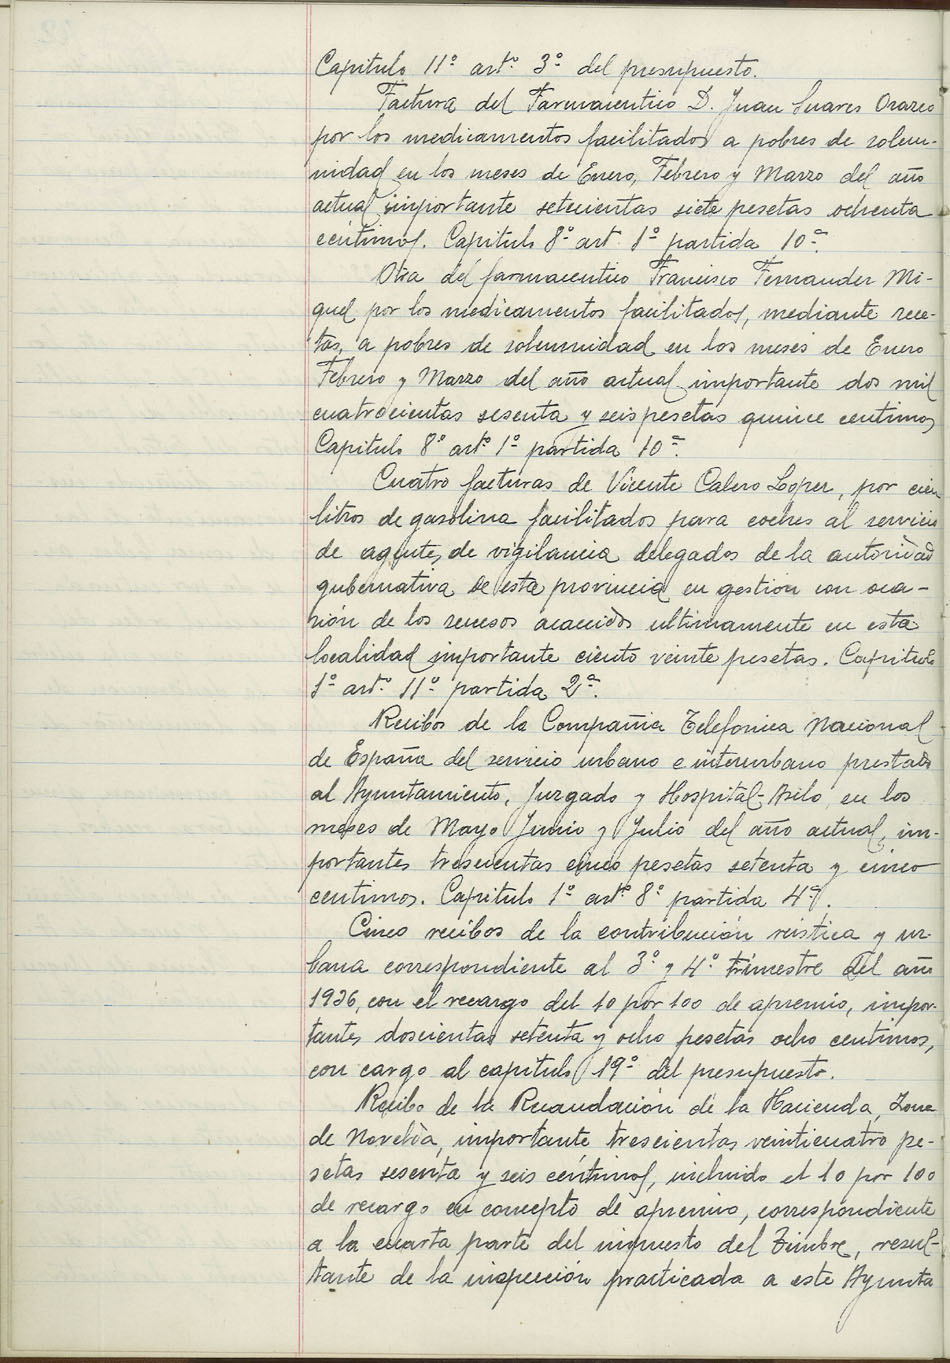 Capitulo 11º artº 3º del presupuesto.
Factura del Farmaceutico D. Juan Suares Orozco
por los medicamentos facilitados a pobres de solem-
nidad en los meses de Enero, Febrero y Marzo del año
actual importante setecientas siete pesetas ochenta
centimos. Capitulo 8º art 1º partida 10ª.
Otra del farmaceutico Francisco Fernandez Mi-
quel por los medicamentos facilitados, mediante rece-
tas, a pobres de solemnidad en los meses de Enero
Febrero y Marzo del año actual importante dos mil
cuatrocientas sesenta y seis pesetas quince centimos
Capitulo 8º artº 1º partida 10ª.
Cuatro facturas de Vicente Calero Lopez, por cien
litros de gasolina facilitados para coches al servicio
de agentes de vigilancia delegados de la autoridad
gubernativa de esta provincia en gestion con oca-
sión de los sucesos acaecidos ultimamente en esta
localidad importante ciento veinte pesetas. Capitulo
1º artº 11º partida 2ª.
Recibos de la Compañia Telefonica Nacional
de España del servicio urbano e interurbano prestado
al Ayuntamiento, Juzgado y Hospital-Asilo en los
meses de Mayo Junio y Julio del año actual, im-
portantes trescientas cinco pesetas setenta y cinco
centimos. Capitulo 1º artº 8º partida 4ª.
Cinco recibos de la contribución rústica y ur-
bana correspondiente al 3º y 4º trimestre del año
1936, con el recargo del 10 por 100 de apremio, impor-
tantes doscientas setenta y ocho pesetas ocho centimos,
con cargo al capitulo 19º del presupuesto.
Recibo de la Recaudación de la Hacienda, Zona
de Novelda, importante trescientas veinticuatro pe-
setas sesenta y seis centimos, incluido el 10 por 100
de recargo en concepto de apremio, correspondiente
a la cuarta parte del impuesto del Timbre, resul-
tante de la inspección practicada a este Ayunta